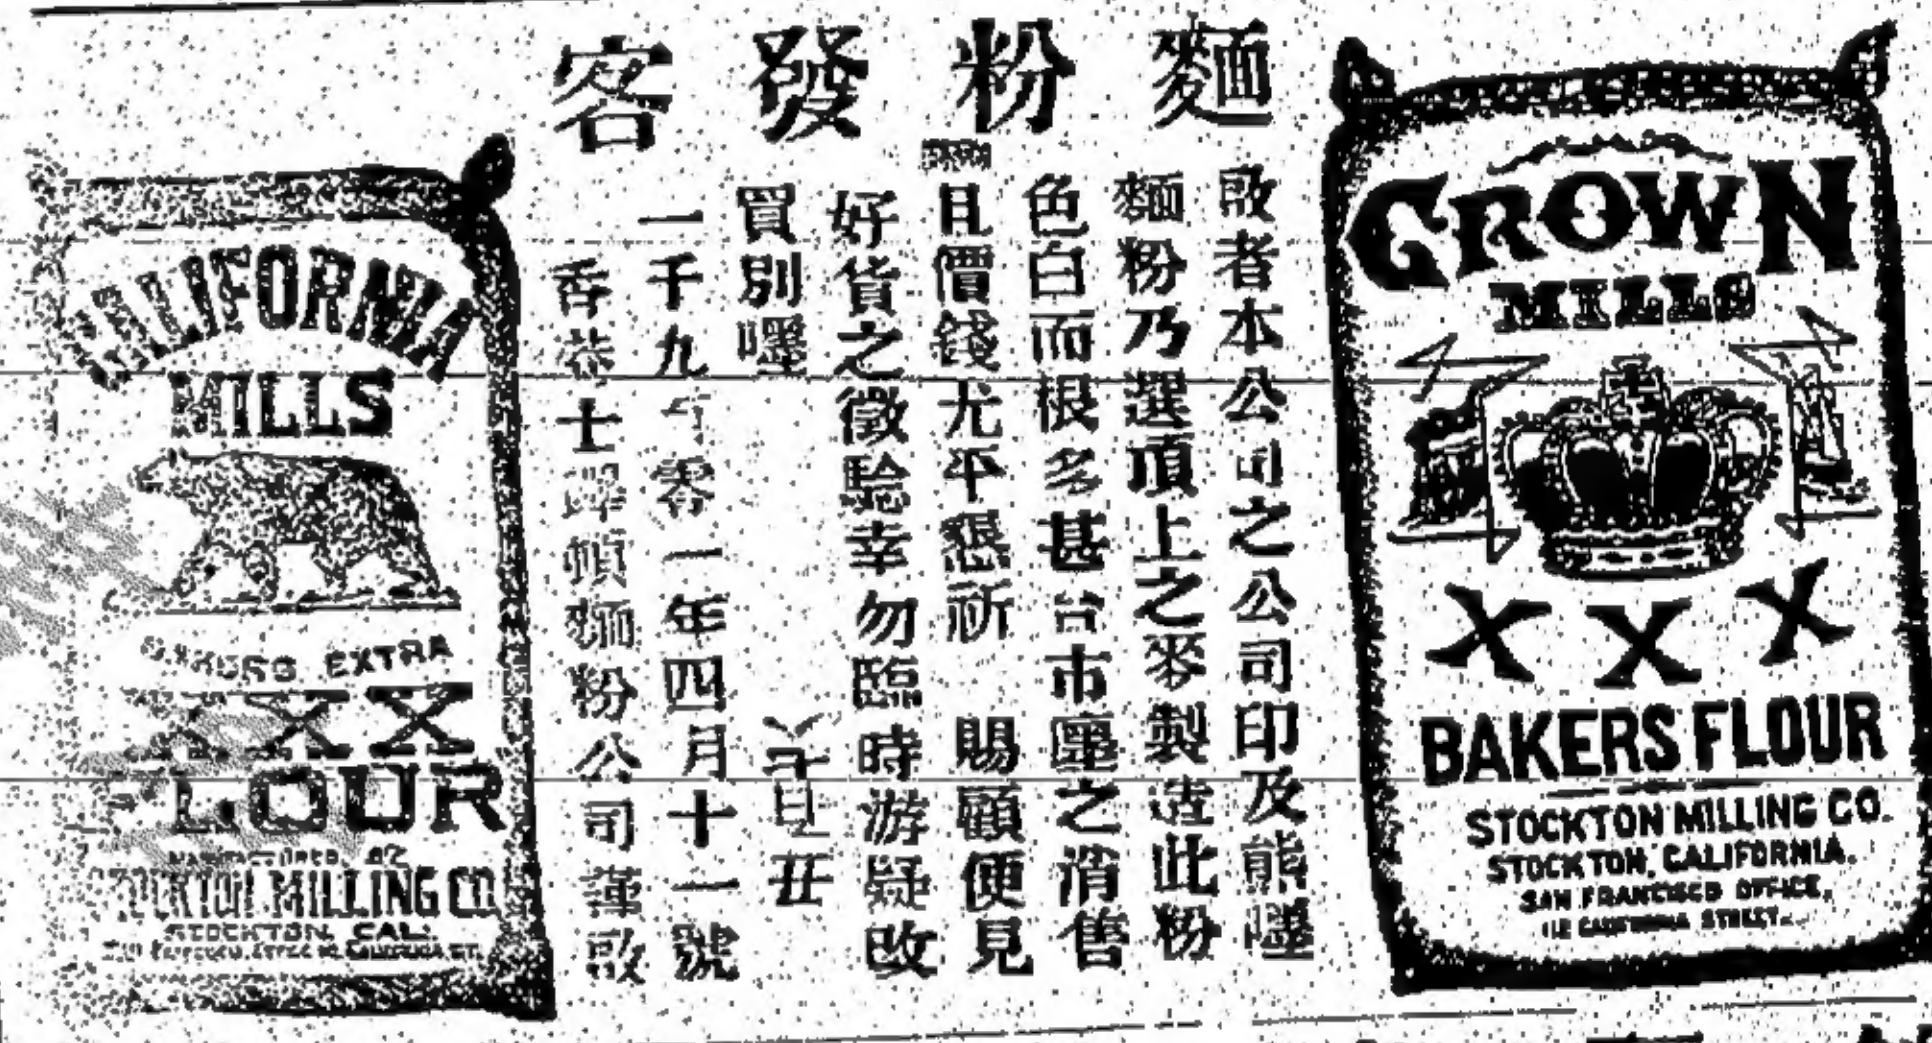 麵粉發客
啟者本公司之公司印及熊嘜
麵粉乃選頂上之麥製造此粉
色白而根多甚合市塵之消售
且價錢尤平懇祈 賜顧便見
好貨之徵驗幸勿臨時游疑改
買別嘜
一千九百零一年四月十一號
士得頓麵粉公司謹啟
CROWN
MILLS
XXX
BAKERS FLOUR
STOCKTON MILLING CO.
STOCKTON, CALIFORNIA.
SAN FRANCISCO OFFICE,
CALIFORNIA STREET
CALIFORNIA
MILLS
BAKERS EXTRA
XXX
FLOUR
MANUFACTURED BY
STOCKTON MILLING CO
STOCKTON, CAL.